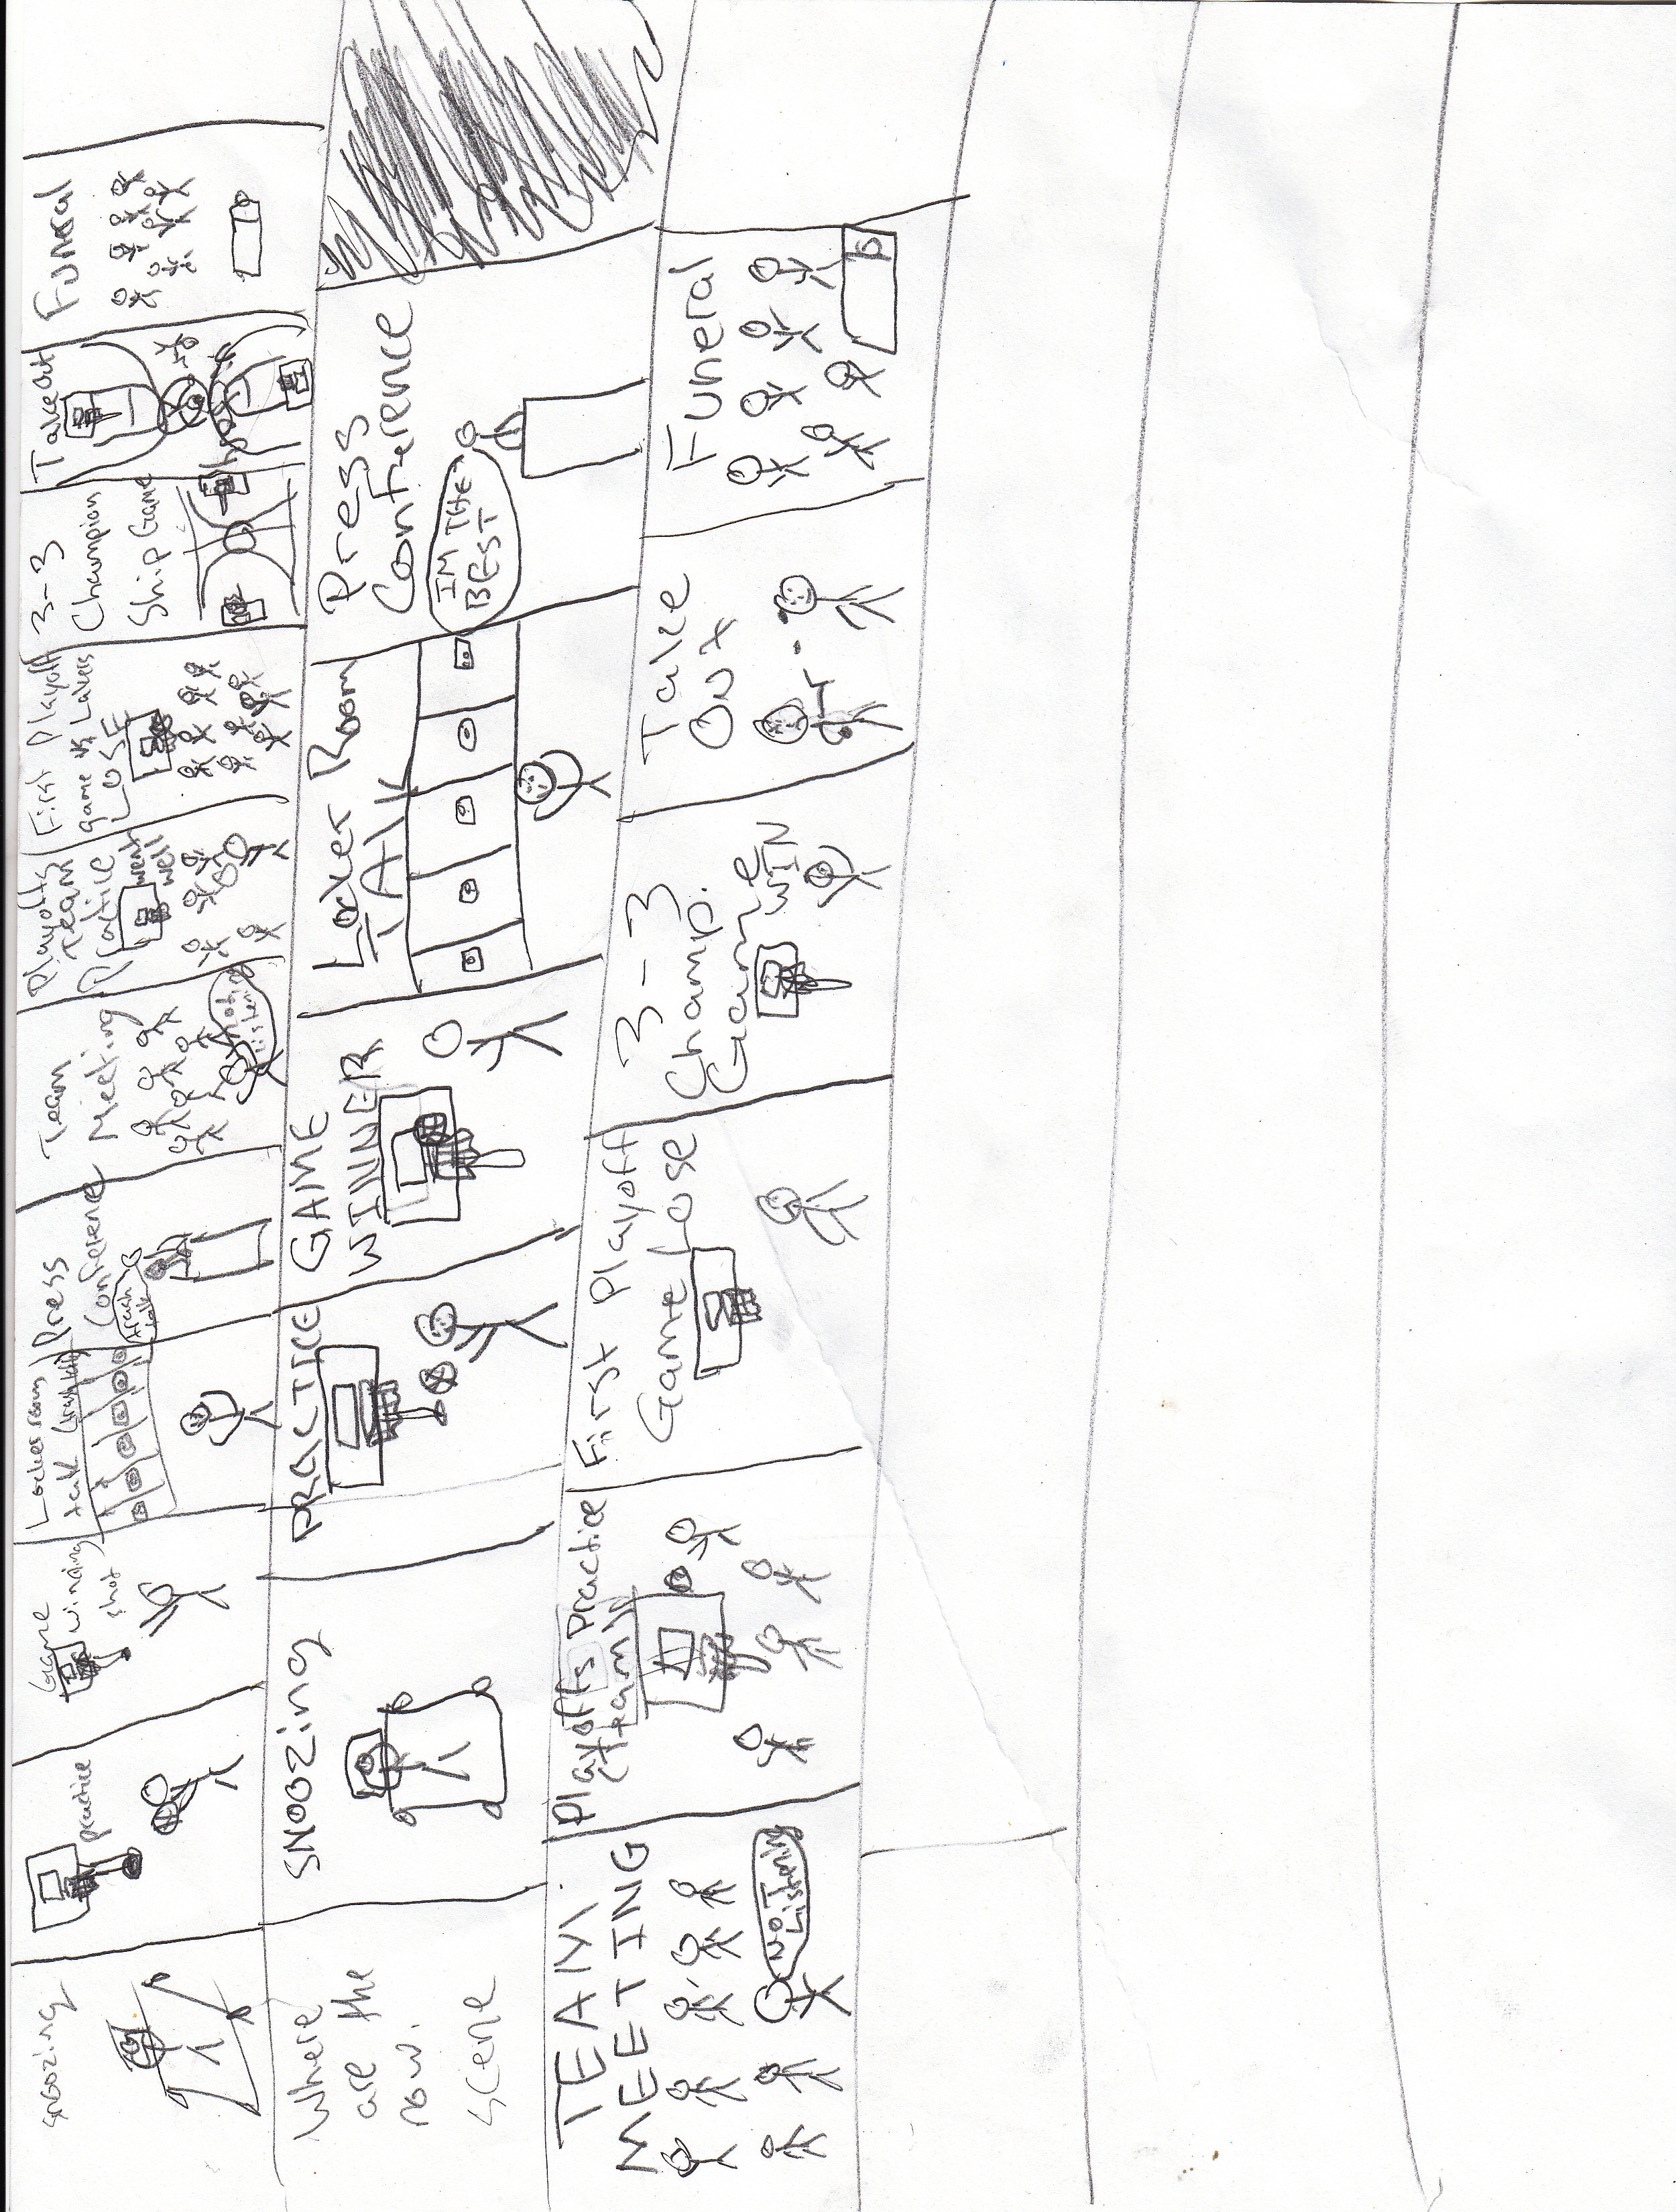 snoozing
practice
Game
winding
shot
Locker room
talk
Press
Conference
trash
talk
Team
Meeting
not
listen
Playoffs
team
Practice
went
well
First Playoff
game vs Lakers
LOSE
3-3
Champion
Ship Game
Takeout
Funeral
Where
are the
now.
scene
SNOOZing
PRACTICE
GAME
WINNER
Locker Room
TAlK
Press
Conference
IM THE
BEST
TEAM
MEETING
NOT
Listening
Playoffs Practice
(team)
First Playoff
Game Lose
3-3
Champ.
Game
WIN
Take
Out
Funeral